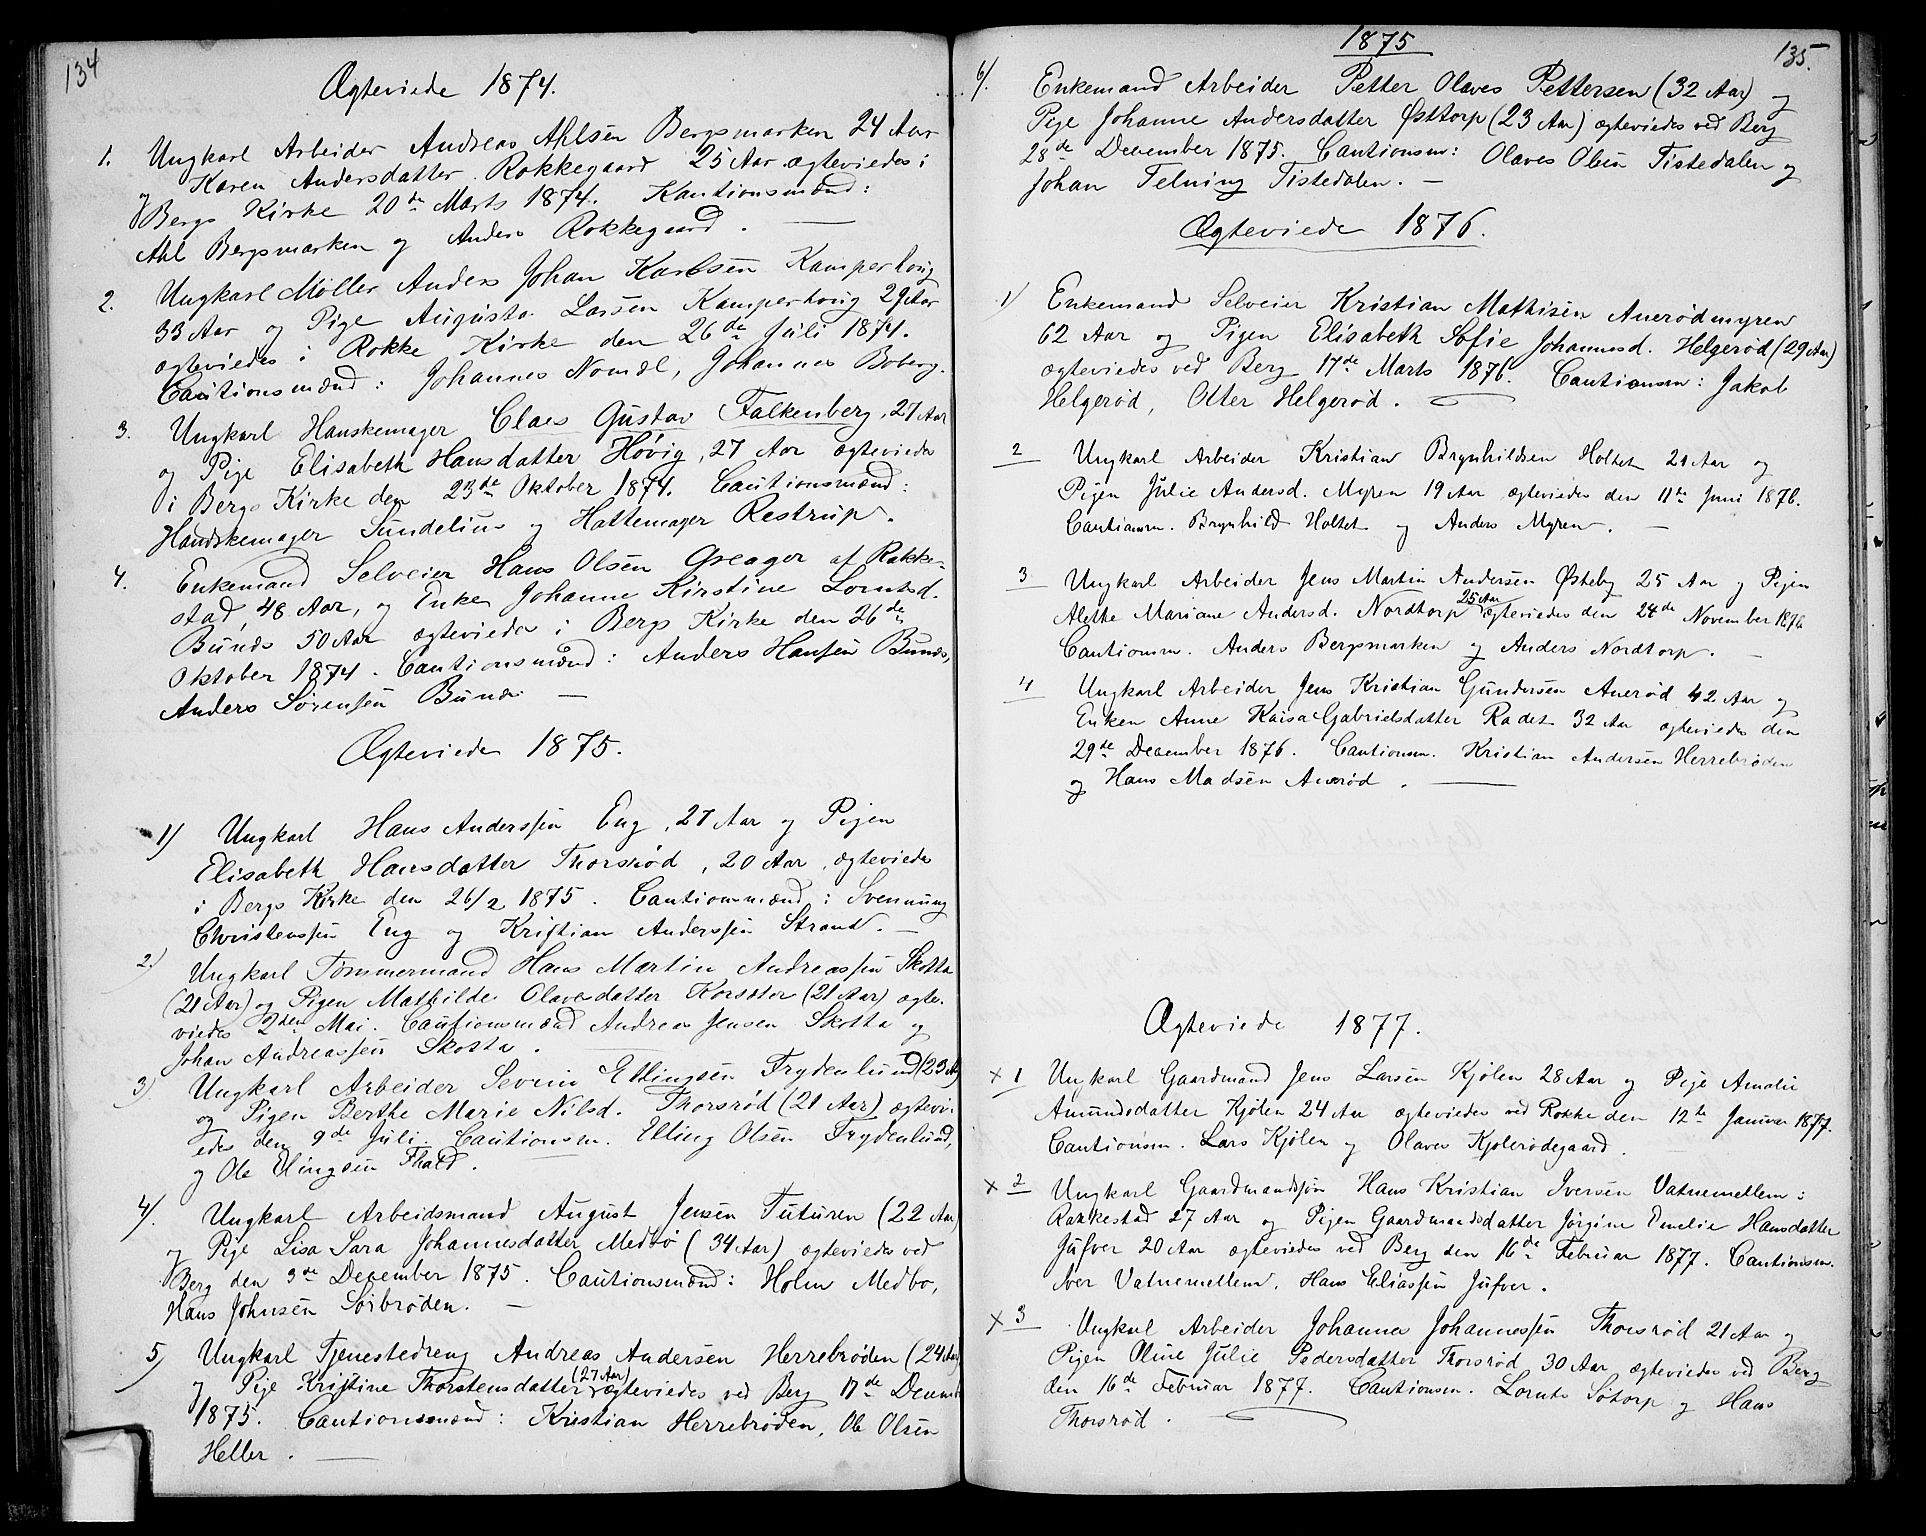 134
Ægteviede 1874.
1. Ungkarl Arbeider Andreas Ahlsen Bergsmarken 24 Aar
og Karen Andersdatter Rokkegaard 25 Aar ægteviedes i
Bergs Kirke 20de Marts 1874. Kautionsmænd:
Ahl Bergsmarken og Anders Rokkegaard.
2. Ungkarl Møller Anders Johan Karlsen Kamperhoug
33 Aar og Pige Augusta Lassen Kamperhoug 29 Aar
ægteviedes i Rokke Kirke den 26de Juli 1874.
Cautionsmænd: Johannes Nomæl, Johannes Boberg.
3. Ungkarl Hanskemager Claes Gustav Falkenberg, 27 Aar
og Pige Elisabeth Hansdatter Høvig, 27 Aar ægteviedes
i Bergs Kirke den 23de Oktober 1874. Cautionsmænd:
Handskemager Sundelius og Hattemager Restrup.
4. Enkemand Selveier Hans Olsen Greager af Rakke-
stad, 48 Aar, og Enke Johanne Kirstine Lorntsd.
Bunds 50 Aar ægteviedes i Bergs Kirke den 26de
Oktober 1874. Cautionsmænd: Anders Hansen Bunds,
Anders Sørensen Bunds —
Ægteviede 1875.
1) Ungkarl Hans Anderssen Eng, 27 Aar og Pigen
Elisabeth Hansdatter Thorsrød, 20 Aar, ægteviedes
i Bergs Kirke den 26/2 1875. Cautionsmænd: Svennung
Christenssen Eng og Kristian Anderssen Strand. —
2) Ungkarl Tømmermand Hans Martin Andreassen Skotta
(21 Aar) og Pigen Mathilde Olavesdatter Korsæter (21 Aar) ægte-
viedes 2den Mai. Cautionsmænd Andreas Jensen Skotta og
Johan Andreassen Skotta.
3) Ungkarl Arbeider Severin Ellingsen Frydenlund (23 A
og Pigen Berthe Marie Nilsd. Thorsrød (21 Aar) ægtevi-
edes den 9de Juli. Cautionsm. Elling Olsen Frydenlund,
og Ole Elingsen
4). Ungkarl Arbeidsmand August Jensen Tuturen (22 Aar
og Pige Lisa Sara Johannesdatter Medbø (34 Aar) ægteviedes ved
Berg den 3de December 1875. Cautionsmænd: Holm Medbo,
Hans Johnsen Sørbrøden. —
5) Ungkarl Tjenestedreng Andreas Andersen Herrebrøden (24 Aar)
og Pige Kristine Thorstensdatter (27 Aar) ægteviedes ved Berg 17de Decemb
1875. Cautionsmænd: Kristian Herrebrøden, Ole Olsen
Heller. —
1875
135.
6). Enkemand Arbeider Petter Olaves Pettersen (32 Aar) og
Pige Johanne Andersdatter Østtorp (23 Aar) ægteviedes ved Berg
28de December 1875. Cautionsm: Olaves Olsen Tistedalen og
Johan Telning Tistedalen. —
Ægteviede 1876.
1) Enkemand Selveier Kristian Mathisen Auerødmyren
62 Aar og Pigen Elisabeth Sofie Johannesd. Helgerød (29 Aar)
ægteviedes ved Berg 17de Marts 1876. Cautionsm: Jakob
Helgerød, Otter Helgerød.
2 Ungkarl Arbeider Kristian Brynhildsen Holtet 21 Aar og
Pigen Julie Andersd. Myren 19 Aar ægteviedes den 11te Juni 1876.
Cautionsm. Brynhild Holtet og Anders Myren. —
3 Ungkarl Arbeider Jens Martin Andersen Østeby 25 Aar og Pigen
Alethe Mariane Andersd. Nordtorp 25 Aar ægteviedes den 24de November 1876
Cautionsm. Anders Bergsmarken og Anders Nordtorp. —
4 Ungkarl Arbeider Jens Kristian Gundersen Auerød 42 Aar og
Enken Anne Kaisa Gabrielsdatter Radet 32 Aar ægteviedes den
29de December 1876. Cautionsm. Kristian Andersen Herrebrøden
og Hans Madsen Auerød. —
Ægteviede 1877.
x 1 Ungkarl Gaardmand Jens Larsen Kjølen 28 Aar og Pige Amalie
Amundsdatter Kjølen 24 Aar ægteviedes ved Rokke den 12te Januar 1877.
Cautionsm. Lars Kjølen og Olaves Kjølerødegaard.
x 2 Ungkarl Gaardmandssøn Hans Kristian Iversen Vatnemellem i
Rakkestad 27 Aar og Pigen Gaardmandsdatter Jørgine Emelie Hansdatter
Jufver 20 Aar ægteviedes ved Berg den 16de Februar 1877. Cautionsm.
Iver Vatnemellem, Hans Eliassen Jufver.
x 3 Ungkarl Arbeider Johannes Johannessen Thorsrød 21 Aar og
Pigen Oline Julie Pedersdatter Thorsrød 30 Aar ægteviedes ved Berg
den 16de Februar 1877. Cautionsm. Lornts Søtorp og Hans
Thorsrød.